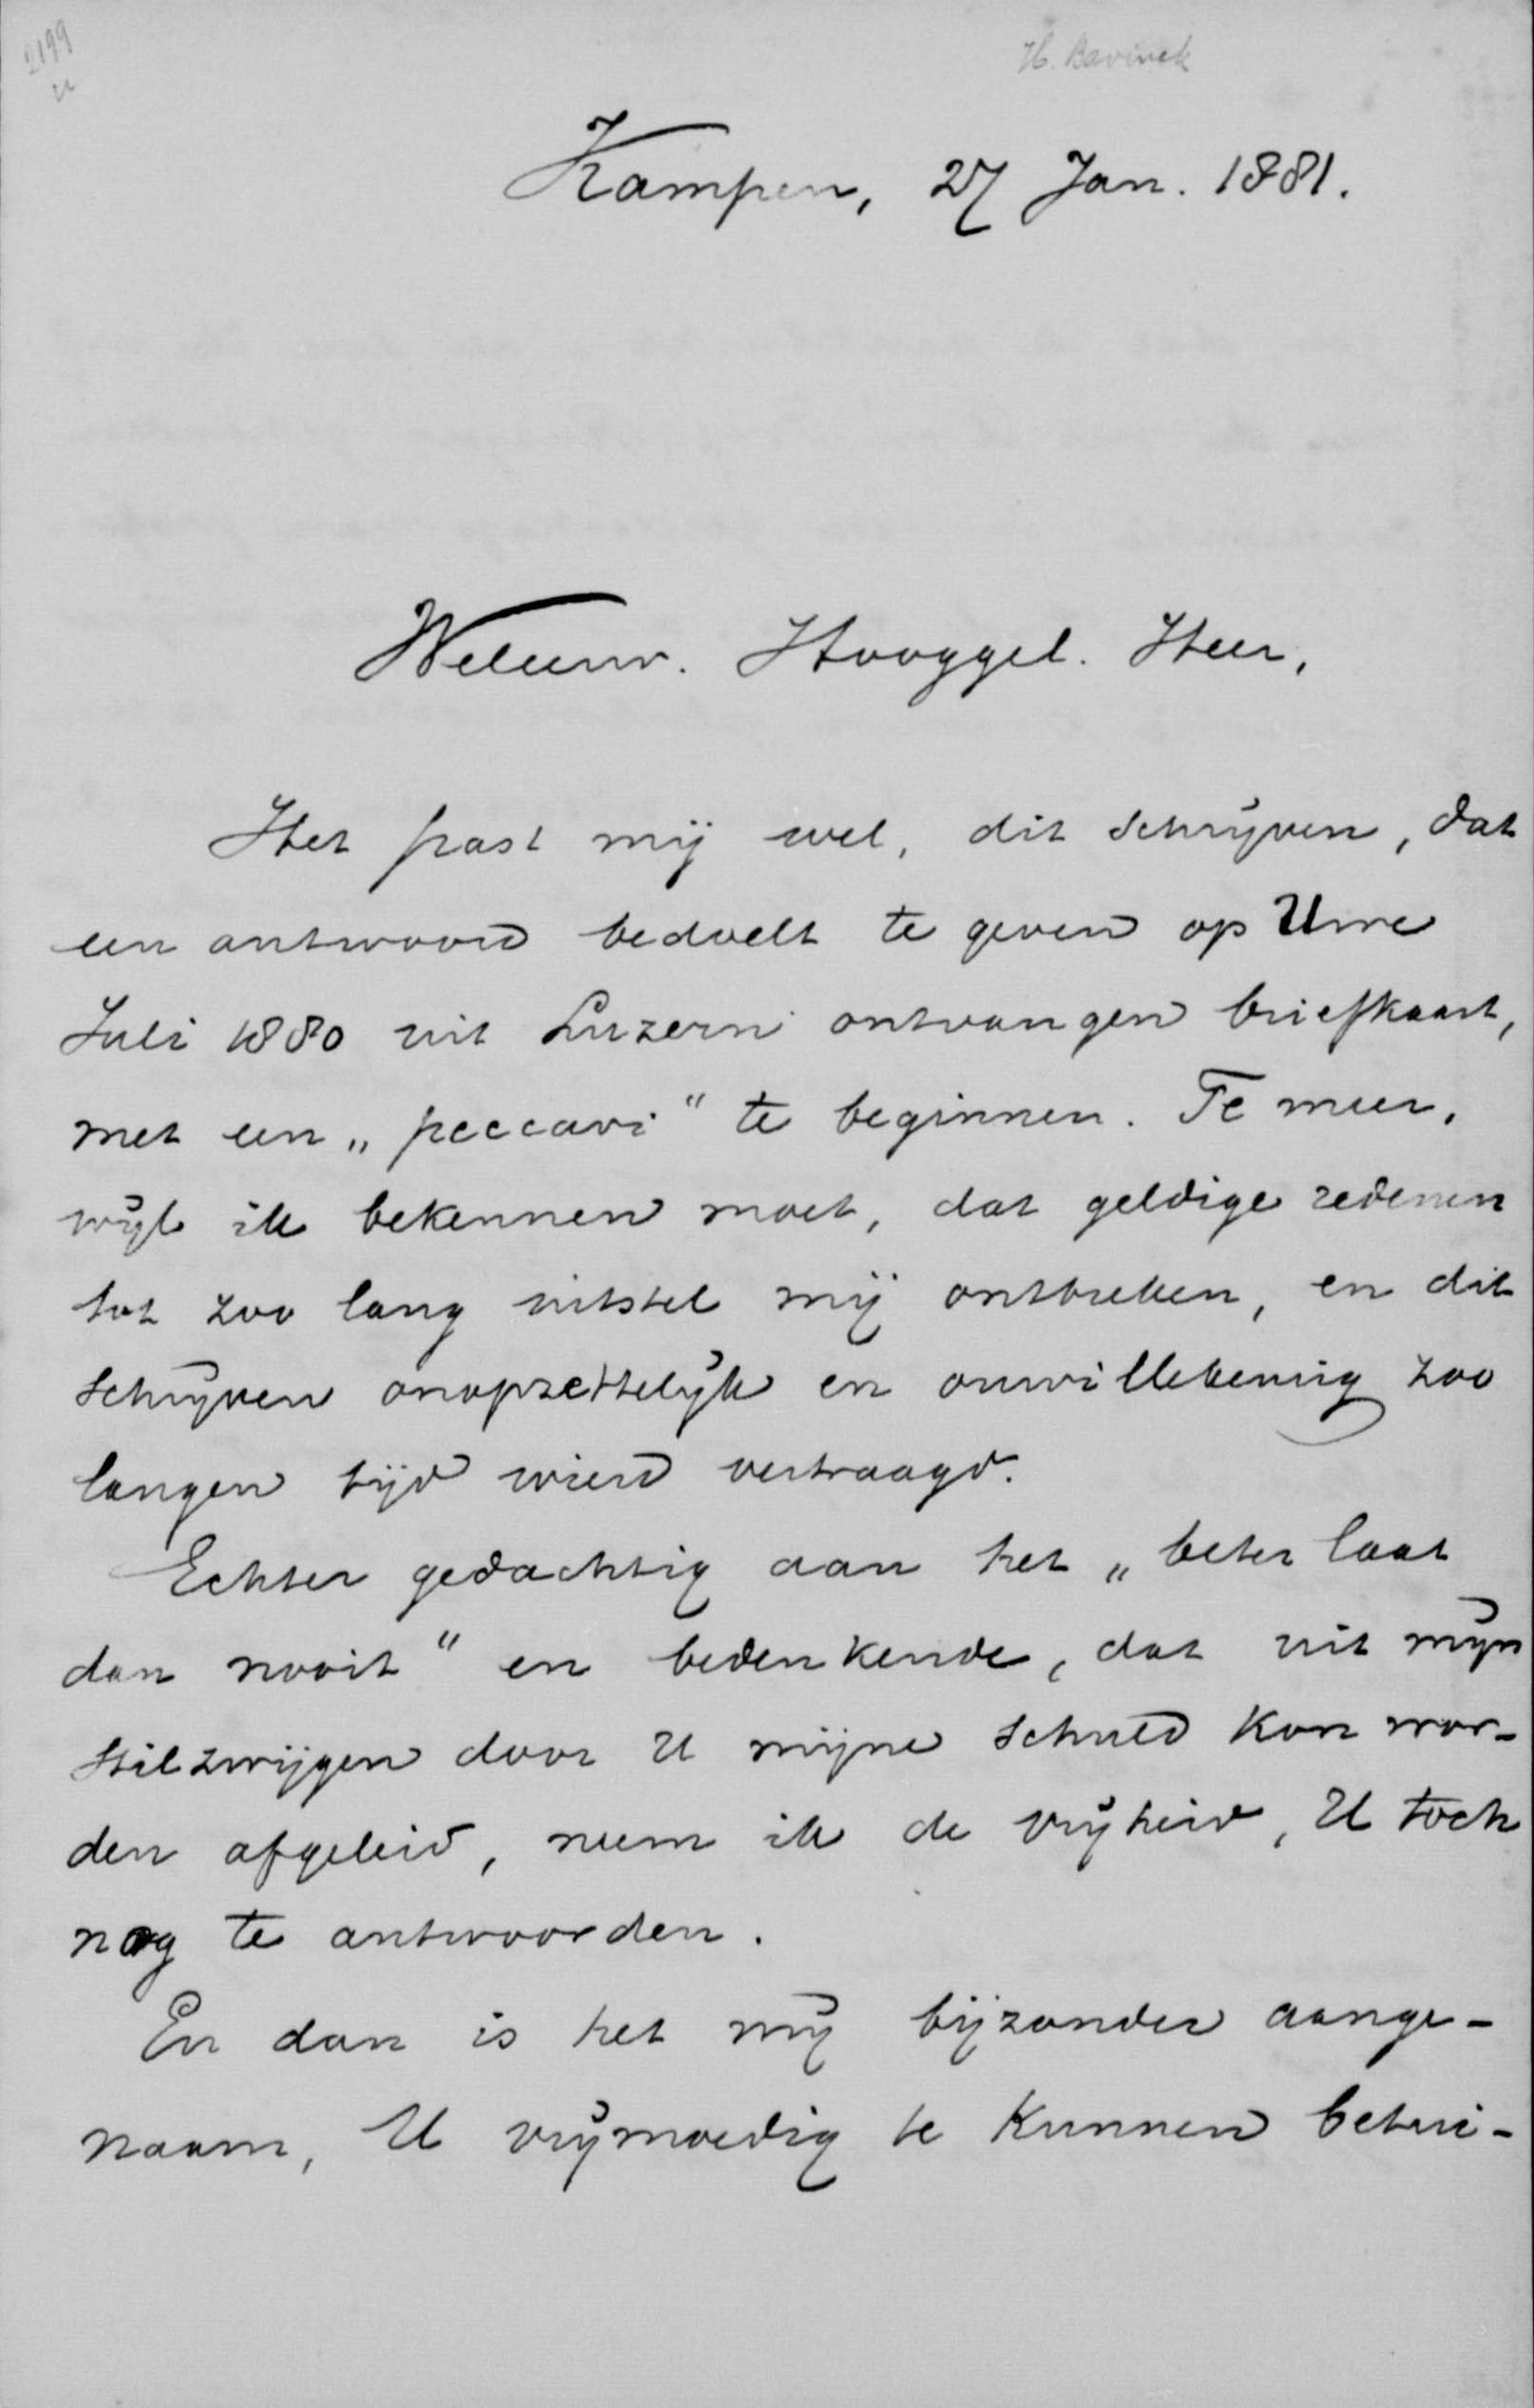 2199
H. Bavinck
Kampen, 27 Jan. 1881.
Weleerw. Hooggel. Heer,
Het past mij wel, dit schrijven, dat
een antwoord bedoelt te geven op Uwe
Juli 1880 uit Luzern ontvangen briefkaart,
met een „peccavi" te beginnen. Te meer,
wijl ik bekennen moet, dat geldige redenen
tot zoo lang uitstel mij ontbreken, en dit
schrijven onopzettelijk en onwillekeurig zoo
langen tijd wierd vertraagd.
Echter gedachtig aan het „beter laat
dan nooit" en bedenkende, dat uit mijn
stilzwijgen door U mijne schuld kon wor-
den afgeleid, neem ik de vrijheid, U toch
nog te antwoorden.
En dan is het mij bijzonder aange-
naam, U vrijmoedig te kunnen betui-